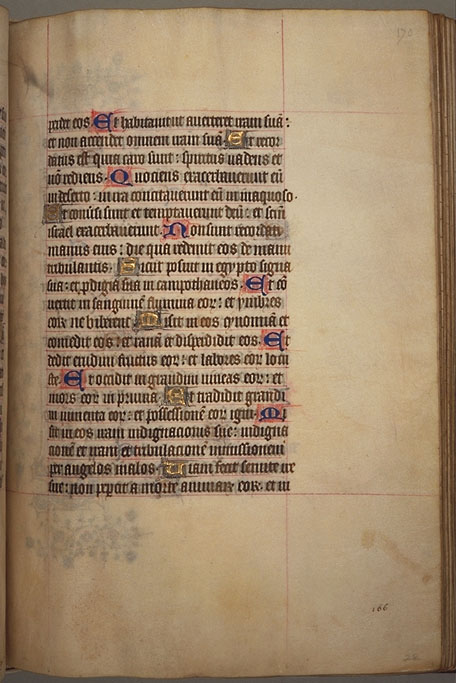 170
perdet eos Et habitauitut auerteret iram suā:
et non accendet omnem iram suā Et recor
datus est quia caro sunt: spiritus uadens et
nō rediens. Quociens exacerbauerunt eū
in deserto: in ira concitauerunt eū in inaquoso.
Et conuersi sunt et temptauerunt deū: et scm̄
israel exacerbauerunt. Non sunt recordati
manus eius: die qua redemit eos de manu
tribulantis. Sicut posuit in egypto signa
sua: et pdigia sua in campo thaneos. Et cō
uertit in sanguinē flumina eor: et ymbres
eor ne biberent. Misit in eos cynomiā et
comedit eos: et ranā et disperdidit eos. Et
dedit erudini fructus eor: et labores eor locu
ste. Et occidit in grandini uineas eor: et
moros eor in pruina. Et tradidit grandi
ni iumenta eor: et possessionē eor igni. Mi
sit in eos iram indignacionis sue: indigna
cionē et iram et tribulacionē inmissionem
per angelos malos. Uiam fecit semite ire
sue: non pepcit a morte animar eor. et iu
166